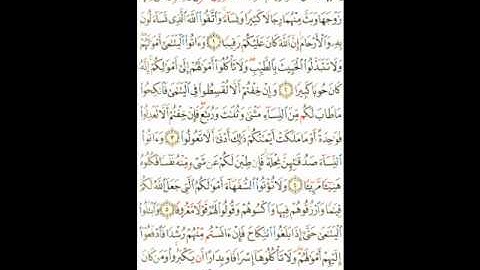 زَوۡجَهَا وَبَثَّ مِنۡهُمَا رِجَالٗا كَثِيرٗا وَنِسَآءٗۚ وَٱتَّقُواْ ٱللَّهَ ٱلَّذِي تَسَآءَلُونَ
بِهِۦ وَٱلۡأَرۡحَامَۚ إِنَّ ٱللَّهَ كَانَ عَلَيۡكُمۡ رَقِيبٗا ١ وَءَاتُواْ ٱلۡيَتَٰمَىٰٓ أَمۡوَٰلَهُمۡۖ
وَلَا تَتَبَدَّلُواْ ٱلۡخَبِيثَ بِٱلطَّيِّبِۖ وَلَا تَأۡكُلُوٓاْ أَمۡوَٰلَهُمۡ إِلَىٰٓ أَمۡوَٰلِكُمۡۚ إِنَّهُۥ
كَانَ حُوبٗا كَبِيرٗا ٢ وَإِنۡ خِفۡتُمۡ أَلَّا تُقۡسِطُواْ فِي ٱلۡيَتَٰمَىٰ فَٱنكِحُواْ
مَا طَابَ لَكُم مِّنَ ٱلنِّسَآءِ مَثۡنَىٰ وَثُلَٰثَ وَرُبَٰعَۖ فَإِنۡ خِفۡتُمۡ أَلَّا تَعۡدِلُواْ
فَوَٰحِدَةً أَوۡ مَا مَلَكَتۡ أَيۡمَٰنُكُمۡۚ ذَٰلِكَ أَدۡنَىٰٓ أَلَّا تَعُولُواْ ٣ وَءَاتُواْ
ٱلنِّسَآءَ صَدُقَٰتِهِنَّ نِحۡلَةٗۚ فَإِن طِبۡنَ لَكُمۡ عَن شَيۡءٖ مِّنۡهُ نَفۡسٗا فَكُلُوهُ
هَنِيٓـٔٗا مَّرِيٓـٔٗا ٤ وَلَا تُؤۡتُواْ ٱلسُّفَهَآءَ أَمۡوَٰلَكُمُ ٱلَّتِي جَعَلَ ٱللَّهُ لَكُمۡ
قِيَٰمٗا وَٱرۡزُقُوهُمۡ فِيهَا وَٱكۡسُوهُمۡ وَقُولُواْ لَهُمۡ قَوۡلٗا مَّعۡرُوفٗا ٥ وَٱبۡتَلُواْ
ٱلۡيَتَٰمَىٰ حَتَّىٰٓ إِذَا بَلَغُواْ ٱلنِّكَاحَ فَإِنۡ ءَانَسۡتُم مِّنۡهُمۡ رُشۡدٗا فَٱدۡفَعُوٓاْ
إِلَيۡهِمۡ أَمۡوَٰلَهُمۡۖ وَلَا تَأۡكُلُوهَآ إِسۡرَافٗا وَبِدَارًا أَن يَكۡبَرُواْۚ وَمَن كَانَ